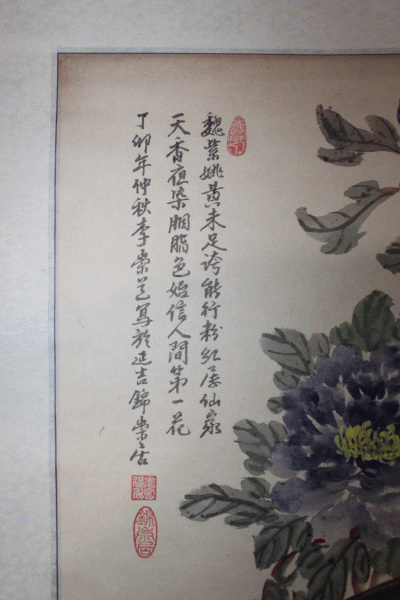 魏紫姚黄未足誇能行粉紅屬仙家
天香夜染胭脂色始信人間第一花
丁卯年仲秋李崇 寫於延吉錦崇居